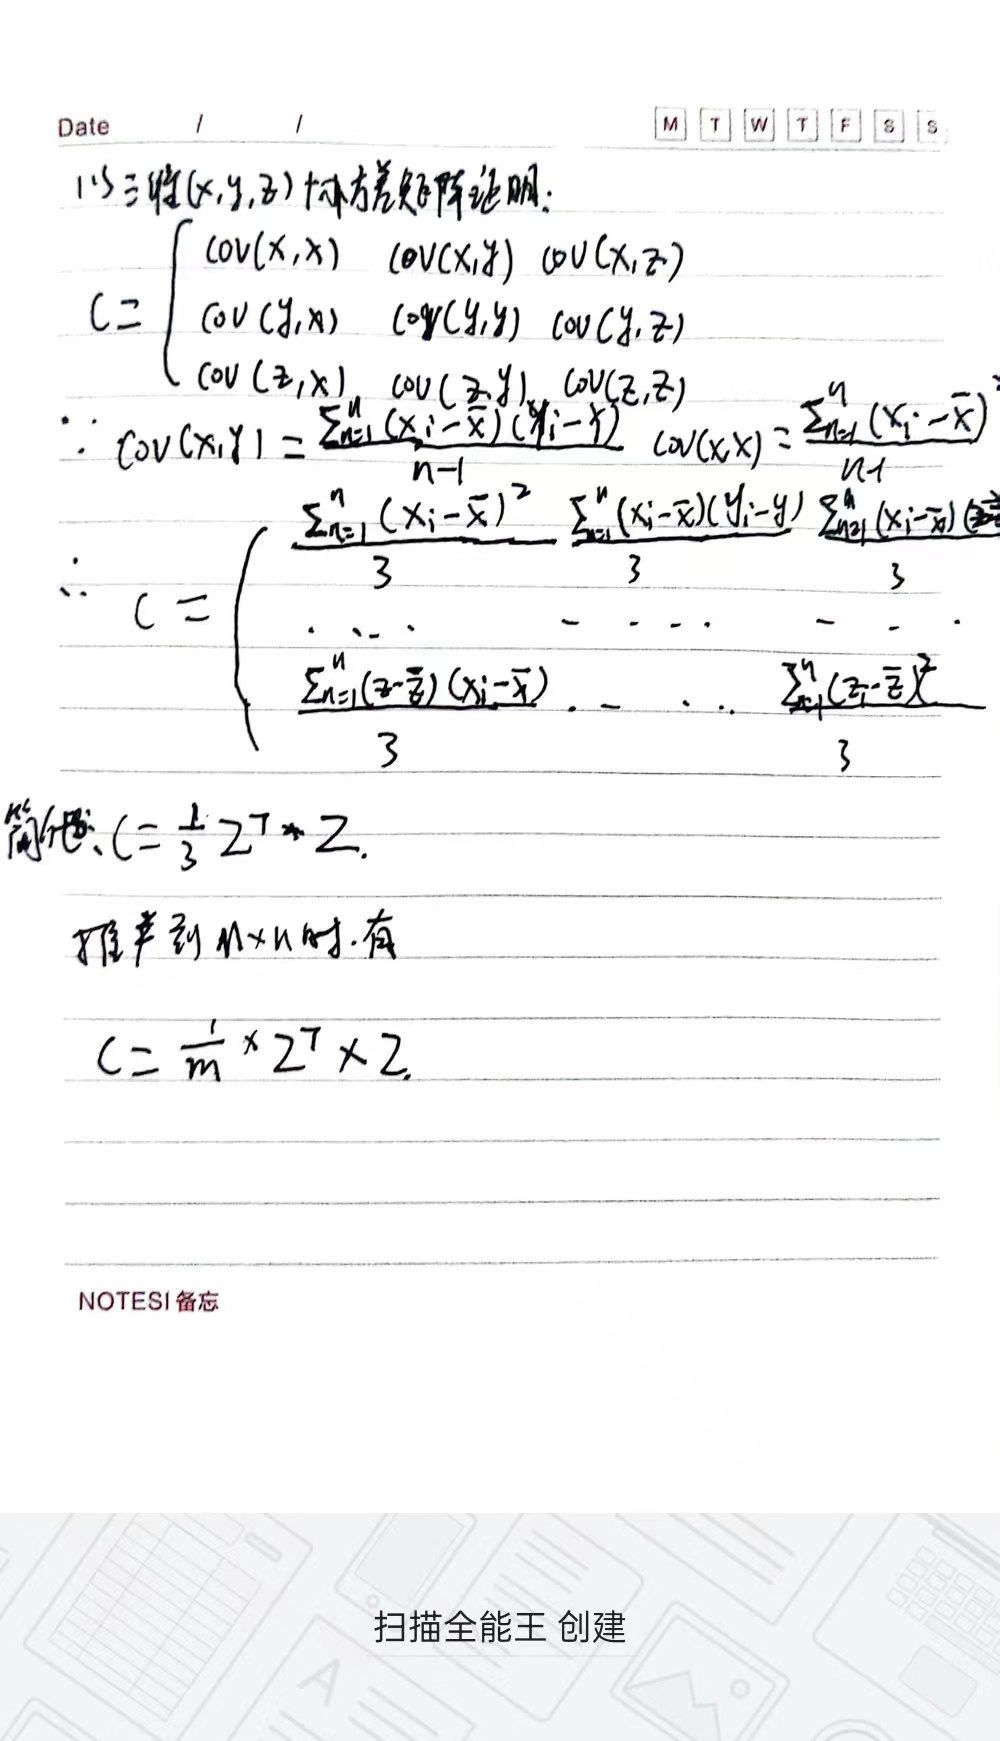 Date / /
M T W T F S S
以三维(x,y,z)协方差矩阵证明:
C= cov(x,x) cov(x,y) cov(x,z)
cov(y,x) cov(y,y) cov(y,z)
cov(z,x) cov(z,y) cov(z,z)
∵ cov(x,y) = Σⁿₙ₌₁(xᵢ-x̄)(yᵢ-ȳ) / n-1 cov(x,x) = Σⁿₙ₌₁(xᵢ-x̄)² / n-1
∴ C = Σⁿₙ₌₁(xᵢ-x̄)² / 3 Σⁿₙ₌₁(xᵢ-x̄)(yᵢ-y) / 3 Σⁿₙ₌₁(xᵢ-x̄)( / 3
. . . . - . . . . - - .
Σⁿₙ₌₁(z-z̄)(xᵢ-x̄) / 3 . - . . . Σⁿₙ₌₁(zᵢ-z̄)² / 3
简化: C = 1/3 Zᵀ * Z.
推举到 n×n时.有
C = 1/m × Zᵀ × Z.
NOTES| 备忘
扫描全能王 创建